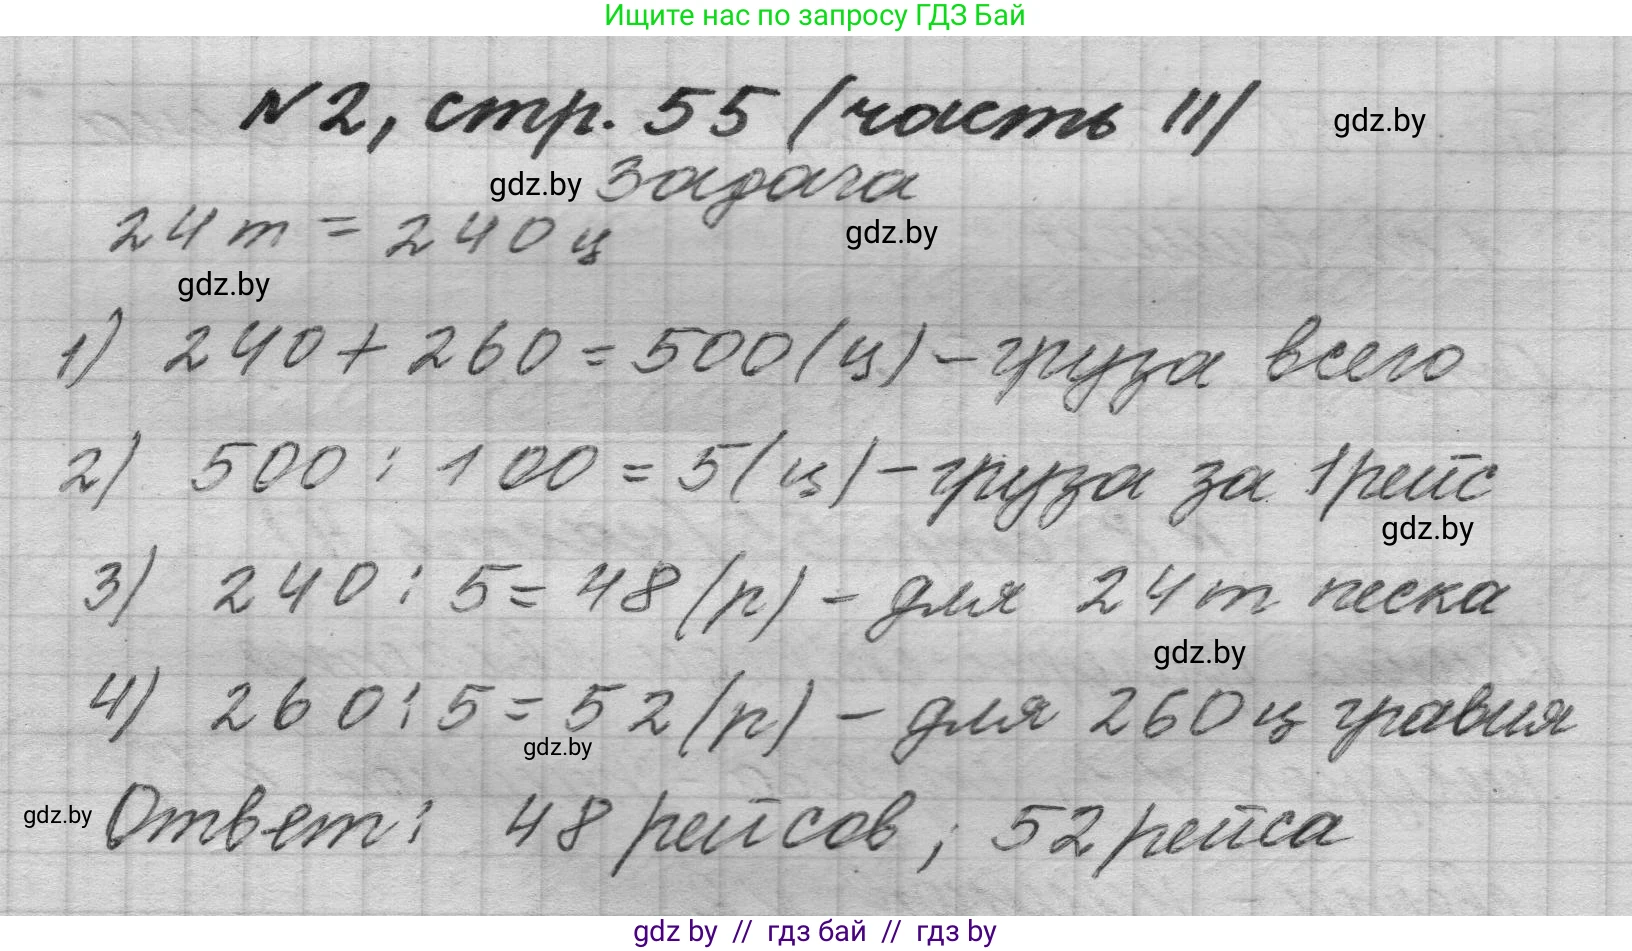 Ищите нас по запросу ГДЗ Бай
№2, стр. 55 (часть II)
gdz.by
gdz.by
Задача
24 т = 240 ц
gdz.by
gdz.by
1) 240 + 260 = 500 (ц) – груза всего
2) 500 : 100 = 5 (ц) – груза за 1 рейс
gdz.by
3) 240 : 5 = 48 (р) – для 24 т песка
gdz.by
4) 260 : 5 = 52 (р) – для 260 ц гравия
gdz.by
gdz.by
Ответ: 48 рейсов; 52 рейса
gdz by // гдз бай // гдз by